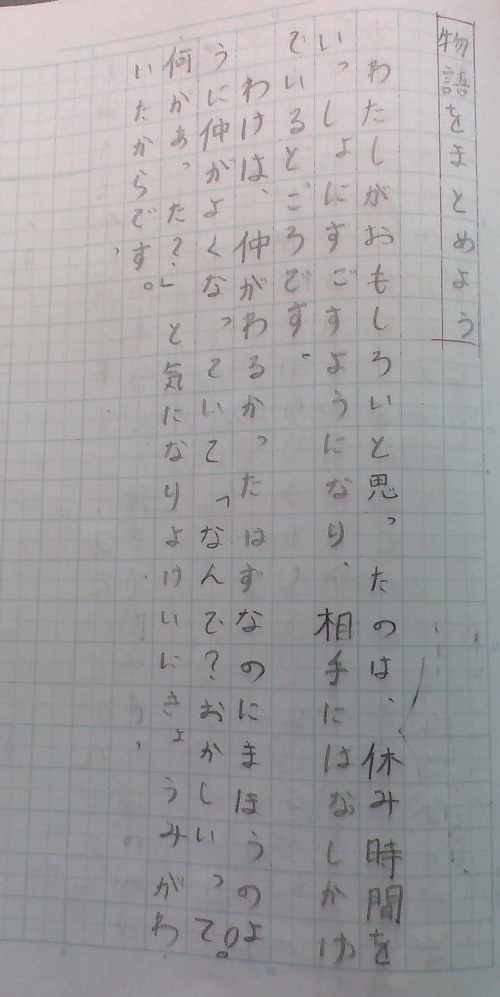 物語をまとめよう
わたしがおもしろいと思ったのは、休み時間を
いっしょにすごすようになり、相手にはなしかけ
でいるとごろです。
わけは、仲がわるかったはずなのにまほうのよ
うに仲がよくなっていて「なんで?おかしいって。
何があった?」と気になりよけいにきょうみがわ
いたからです。